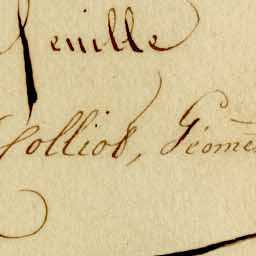 feuille
Golliot, Géomè